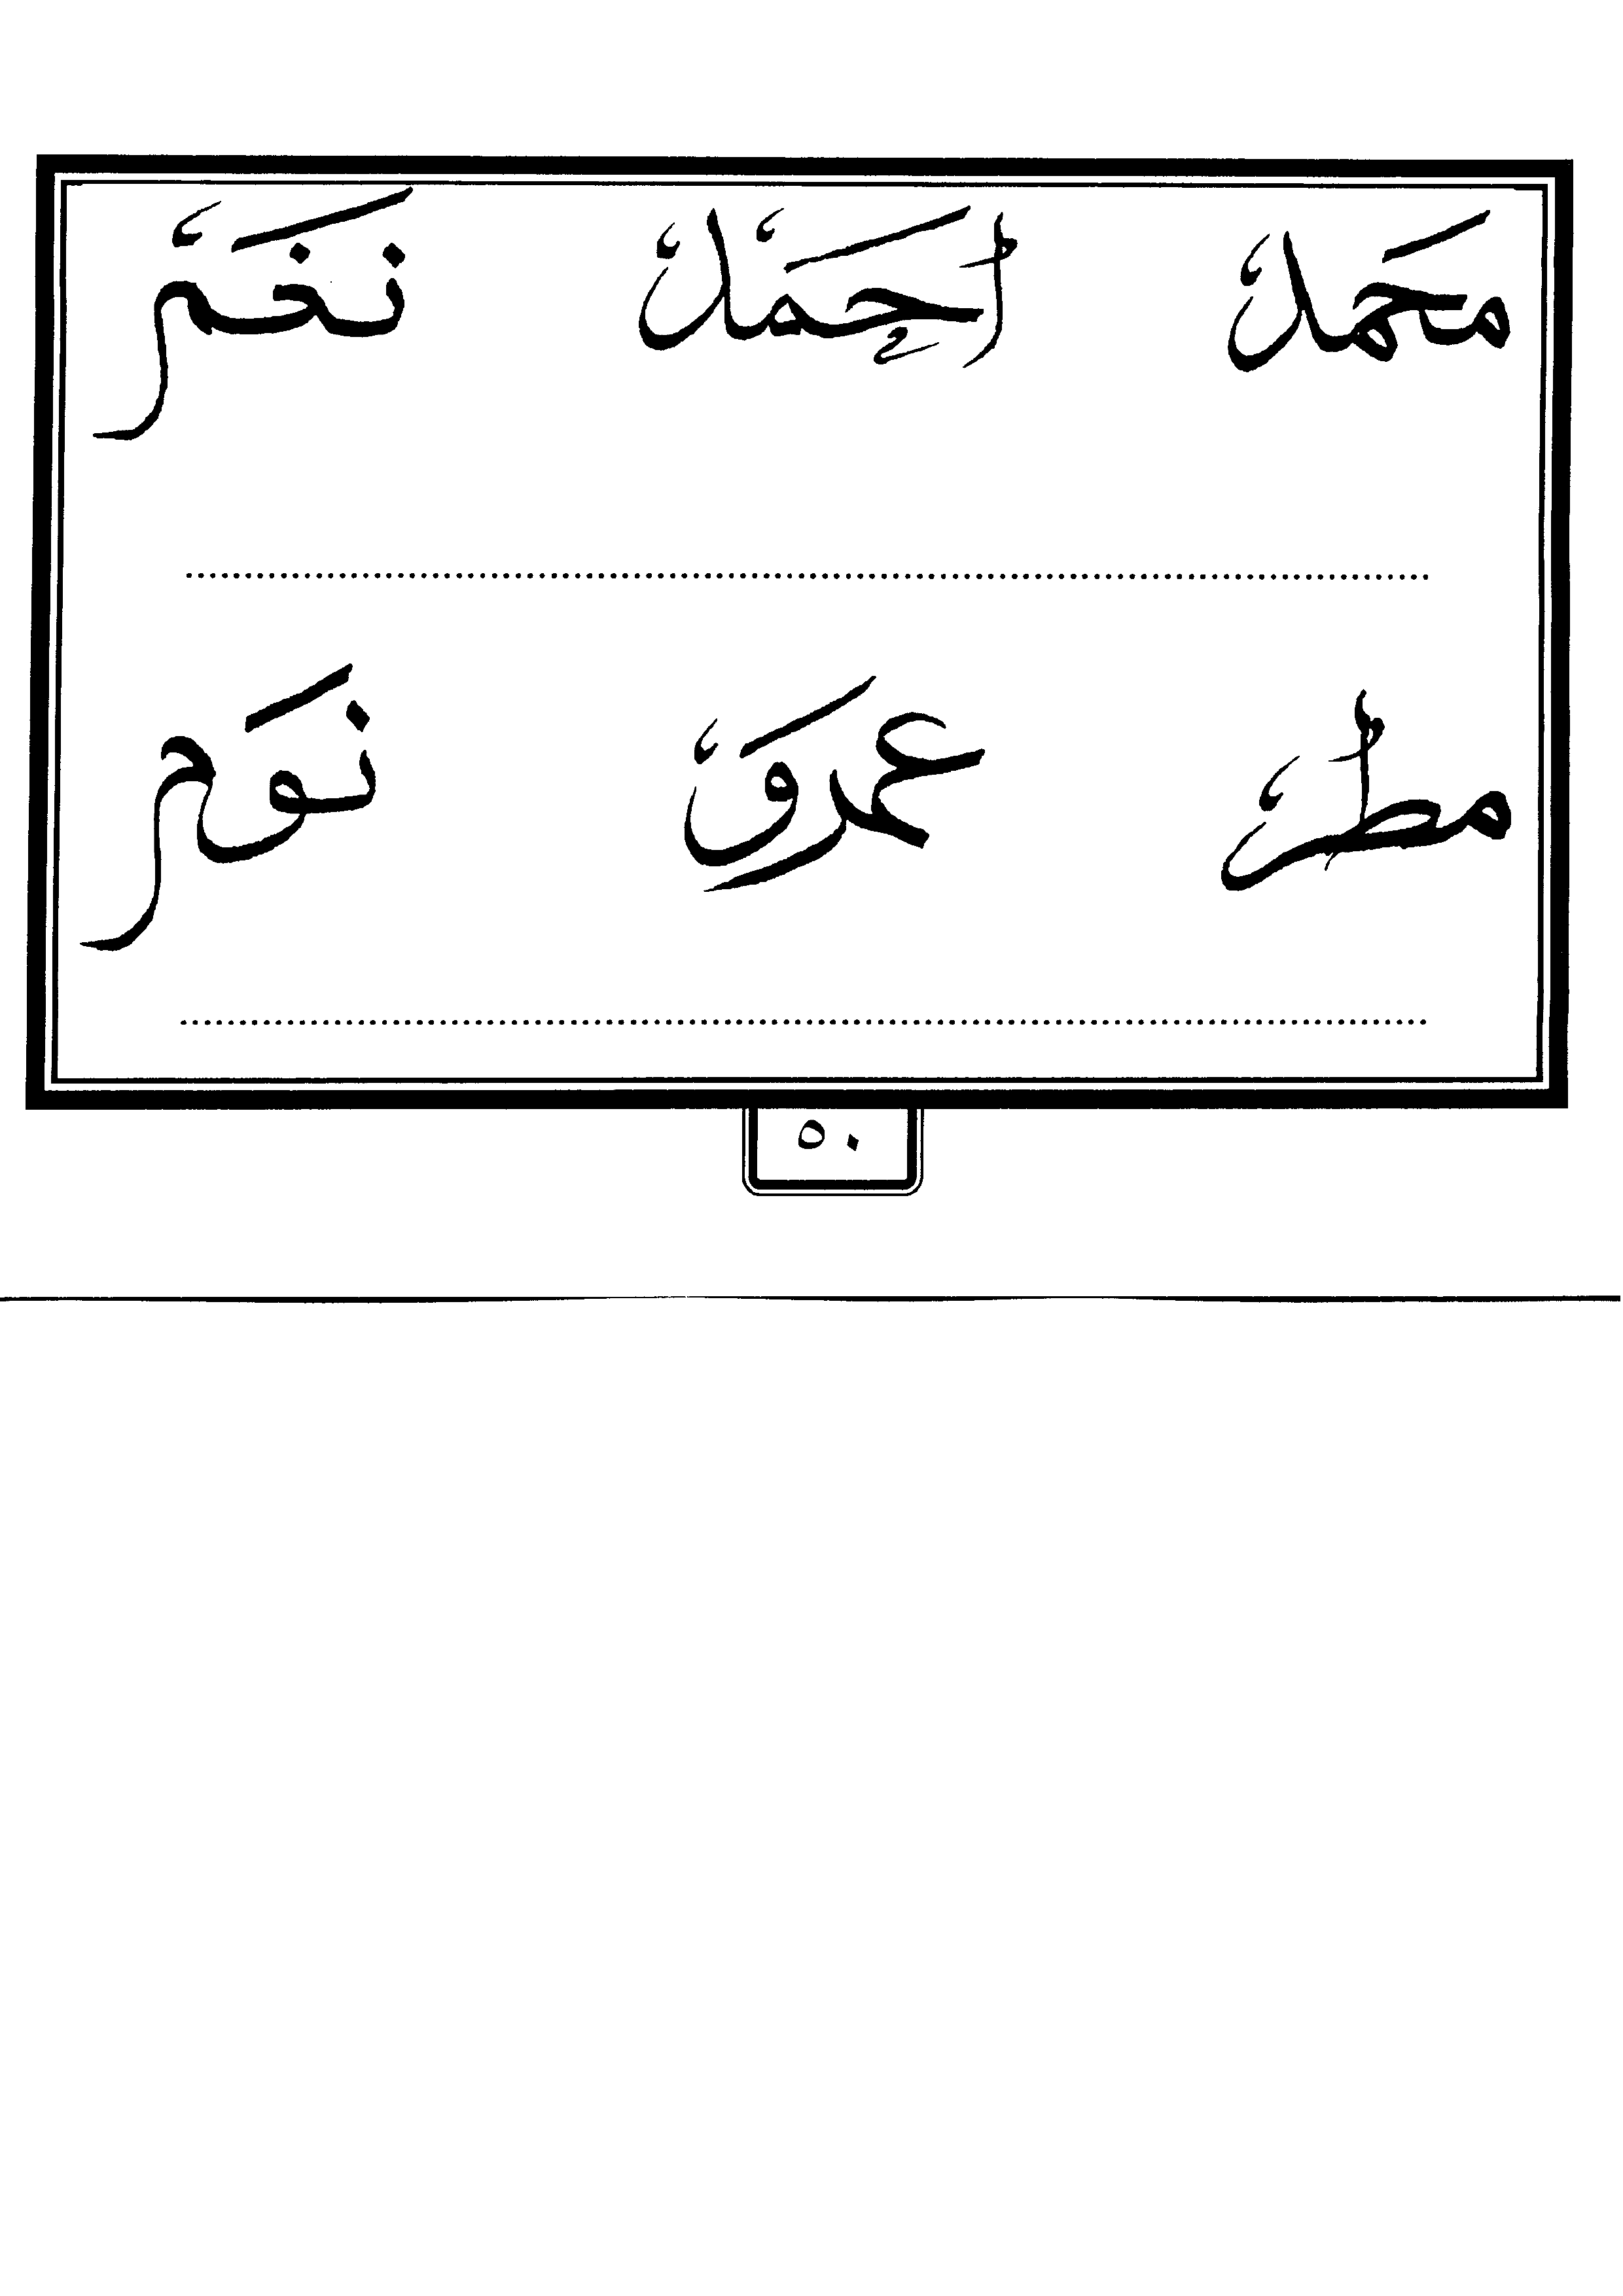 مَحمد أحَمد نَخَم
مطر عمرَو نَوم
٥٠